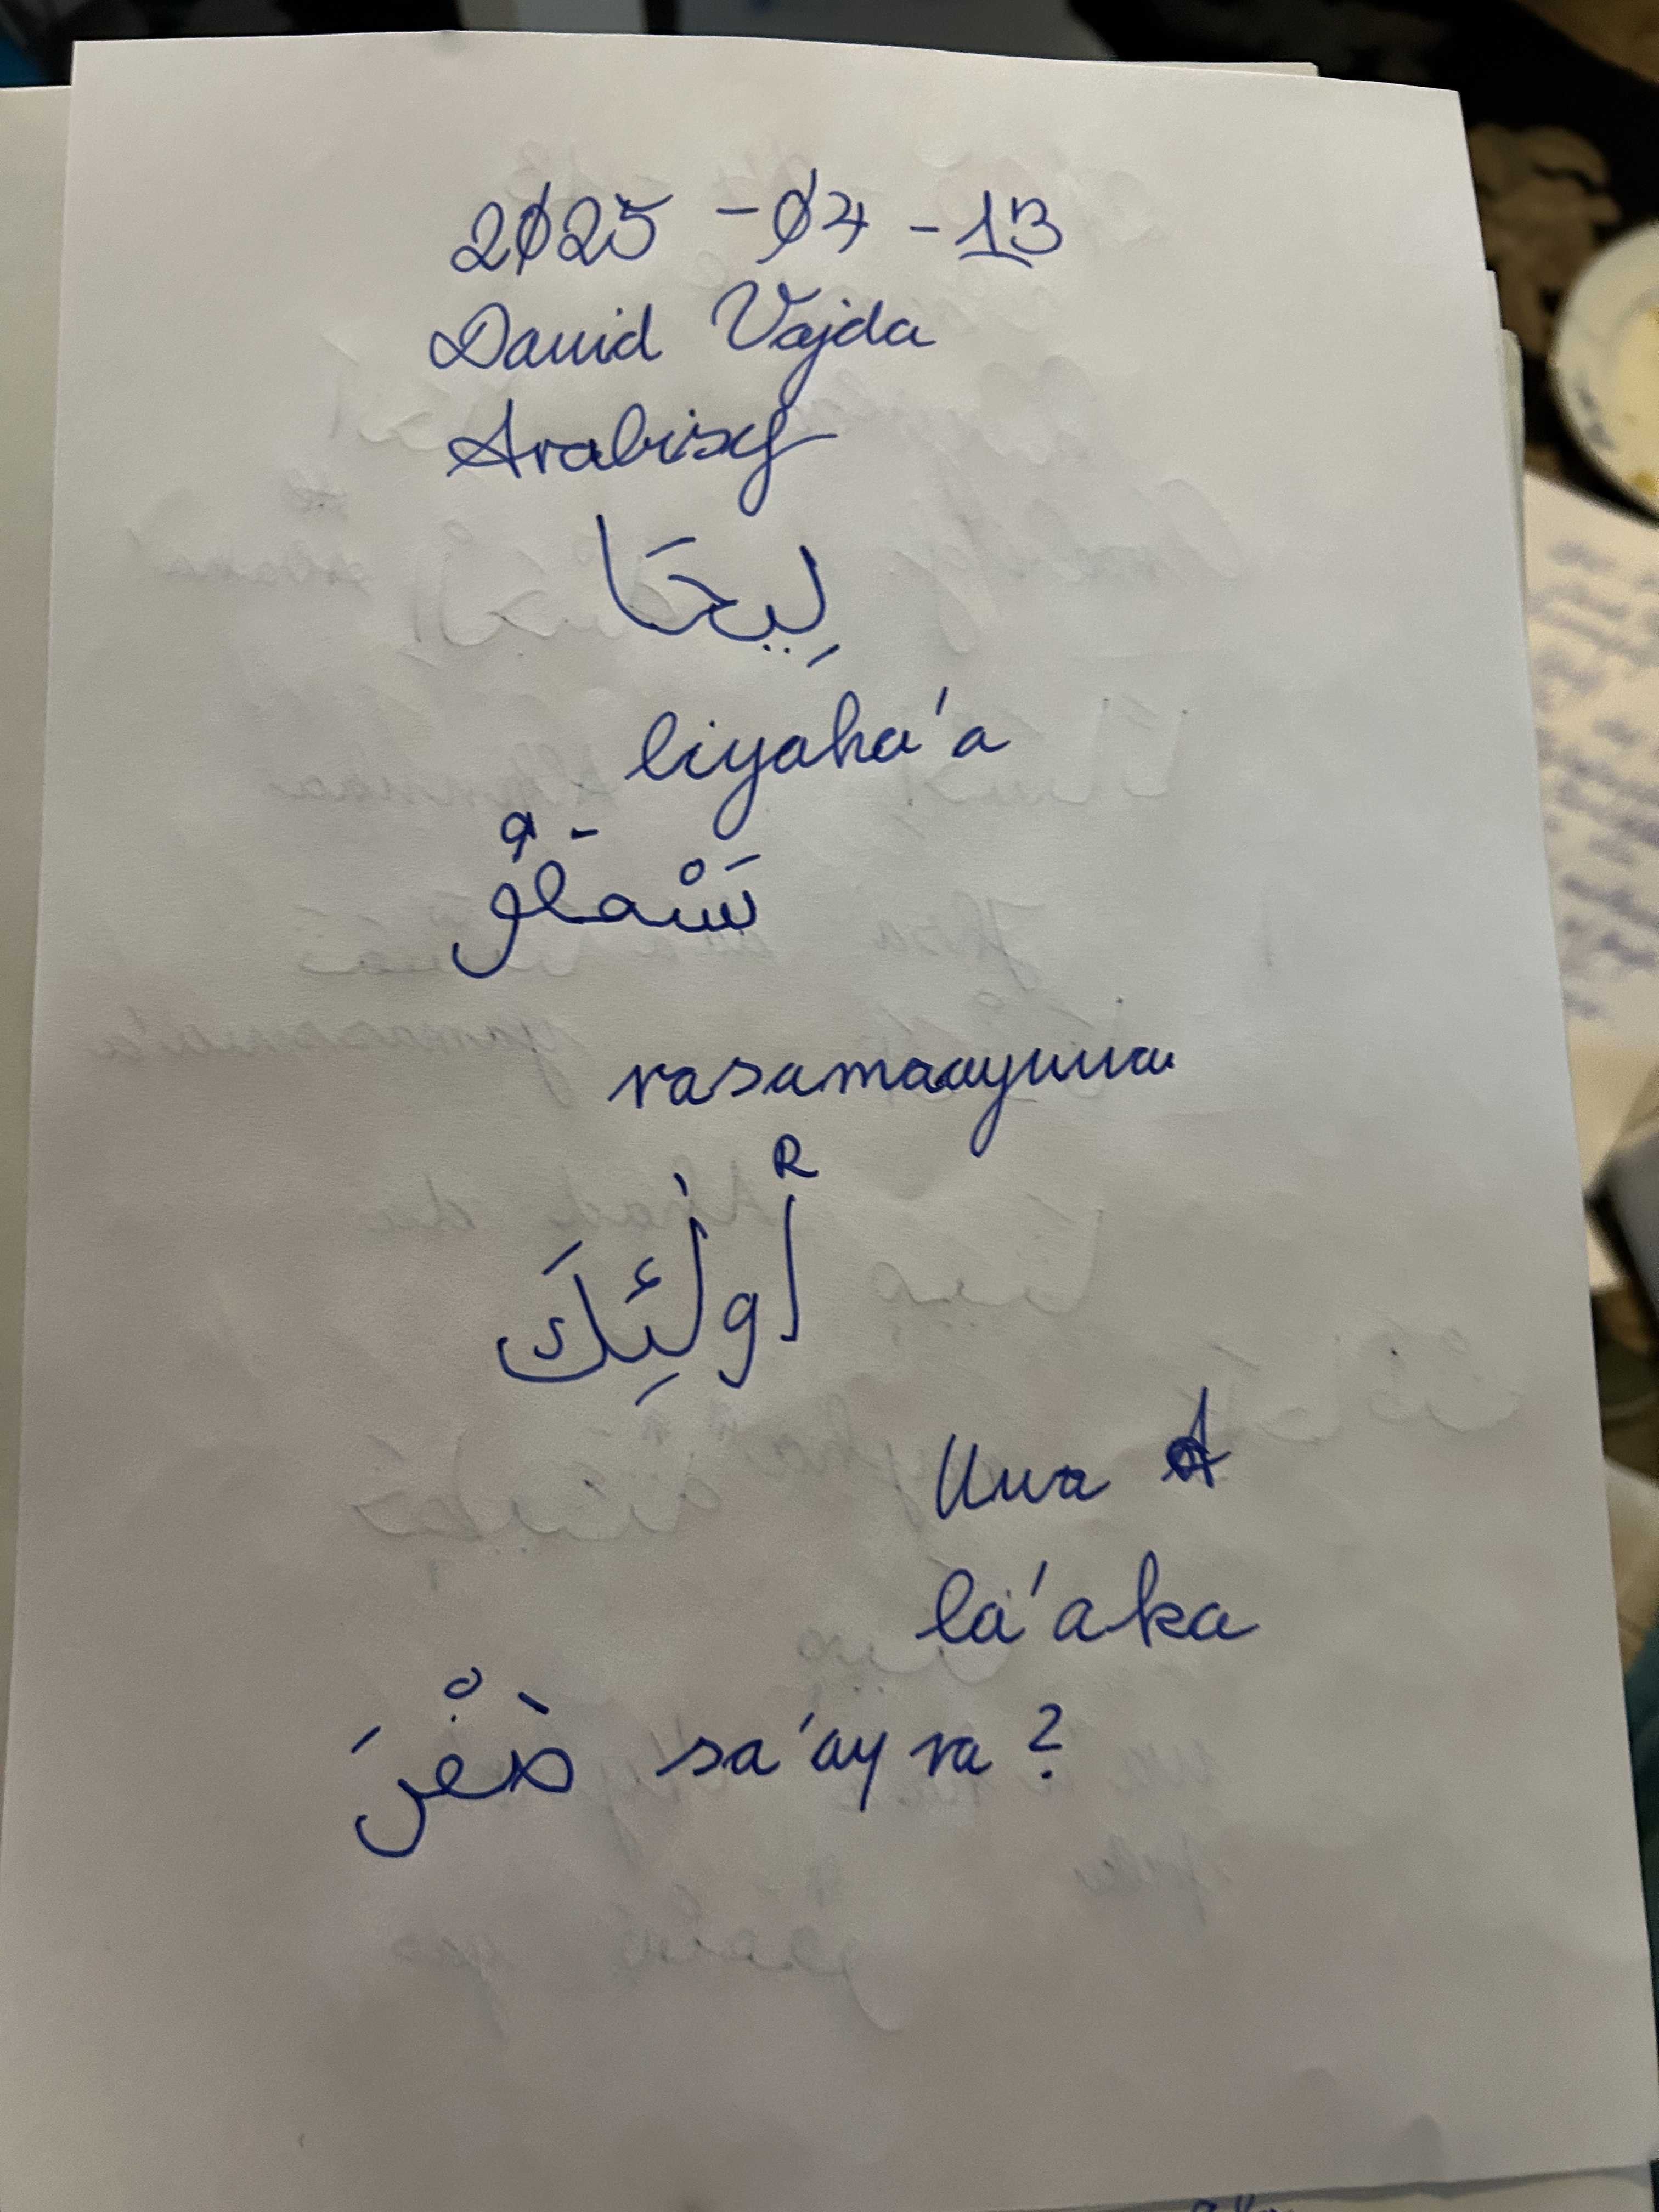 2025-04-13
David Vajda
Arabisch
لِيحَا
liyaha'a
rasamaayuwa
أُولَٰئِكَ
Uwa A
la'aka
sa'ayra?